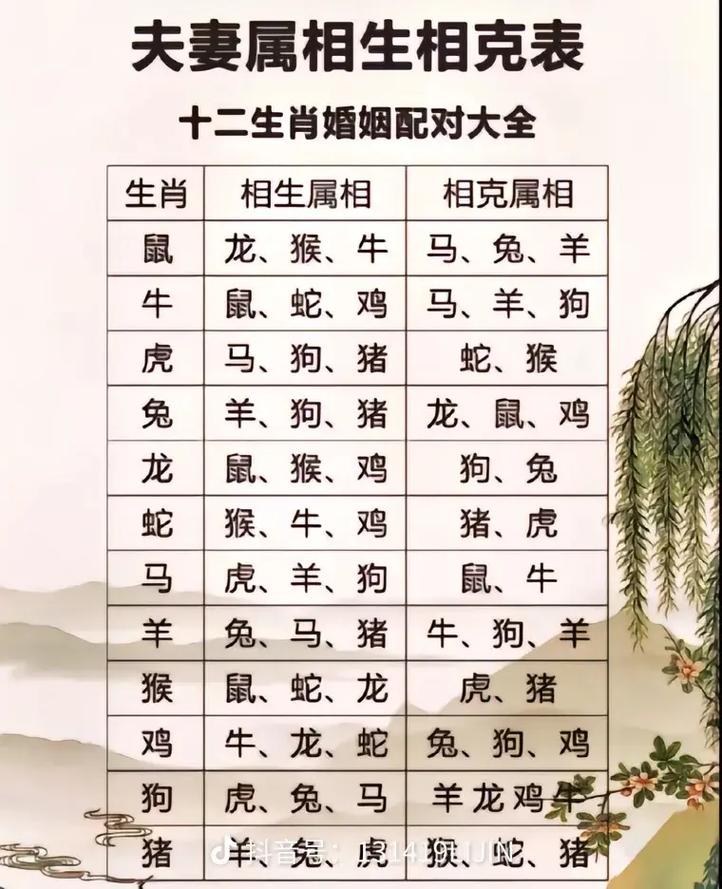 夫妻属相生相克表
十二生肖婚姻配对大全
生肖 相生属相 相克属相
鼠 龙、猴、牛 马、兔、羊
牛 鼠、蛇、鸡 马、羊、狗
虎 马、狗、猪 蛇、猴
兔 羊、狗、猪 龙、鼠、鸡
龙 鼠、猴、鸡 狗、兔
蛇 猴、牛、鸡 猪、虎
马 虎、羊、狗 鼠、牛
羊 兔、马、猪 牛、狗、羊
猴 鼠、蛇、龙 虎、猪
鸡 牛、龙、蛇 兔、狗、鸡
狗 虎、兔、马 羊龙鸡牛
猪 羊、兔、虎 猴、蛇、猪
抖音号: